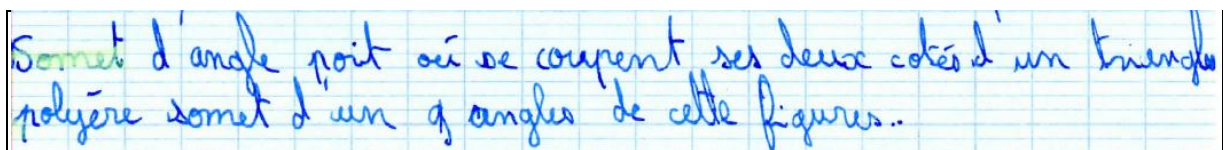 Somet d'angle poit où se coupent ses deux cotés d'un triengles
polyère somet d'un q angles de cette figures..